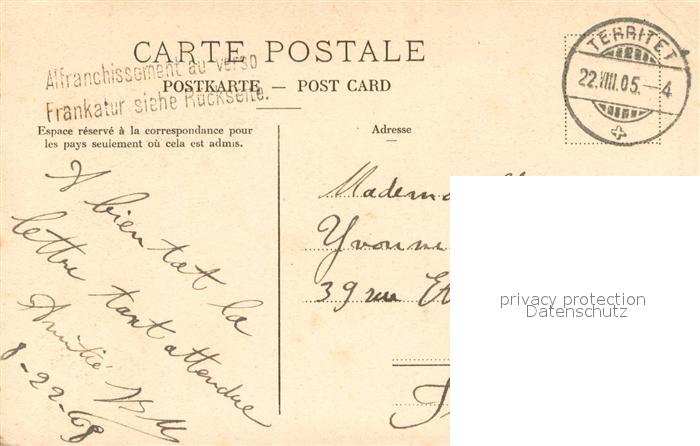 CARTE POSTALE
Affranchissement au verso
Frankatur siehe Rückseite.
POSTKARTE — POST CARD
TERRITET
22.VIII.05.—4
Espace réservé à la correspondance pour
les pays seulement où cela est admis.
Adresse
A bientot la
lettre tant attendue
Amitié
Mademo
Yvonne
39 rue
privacy protection
Datenschutz